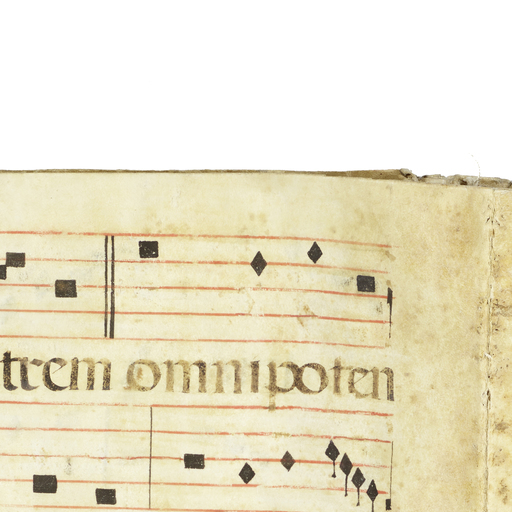 trem omnipoten